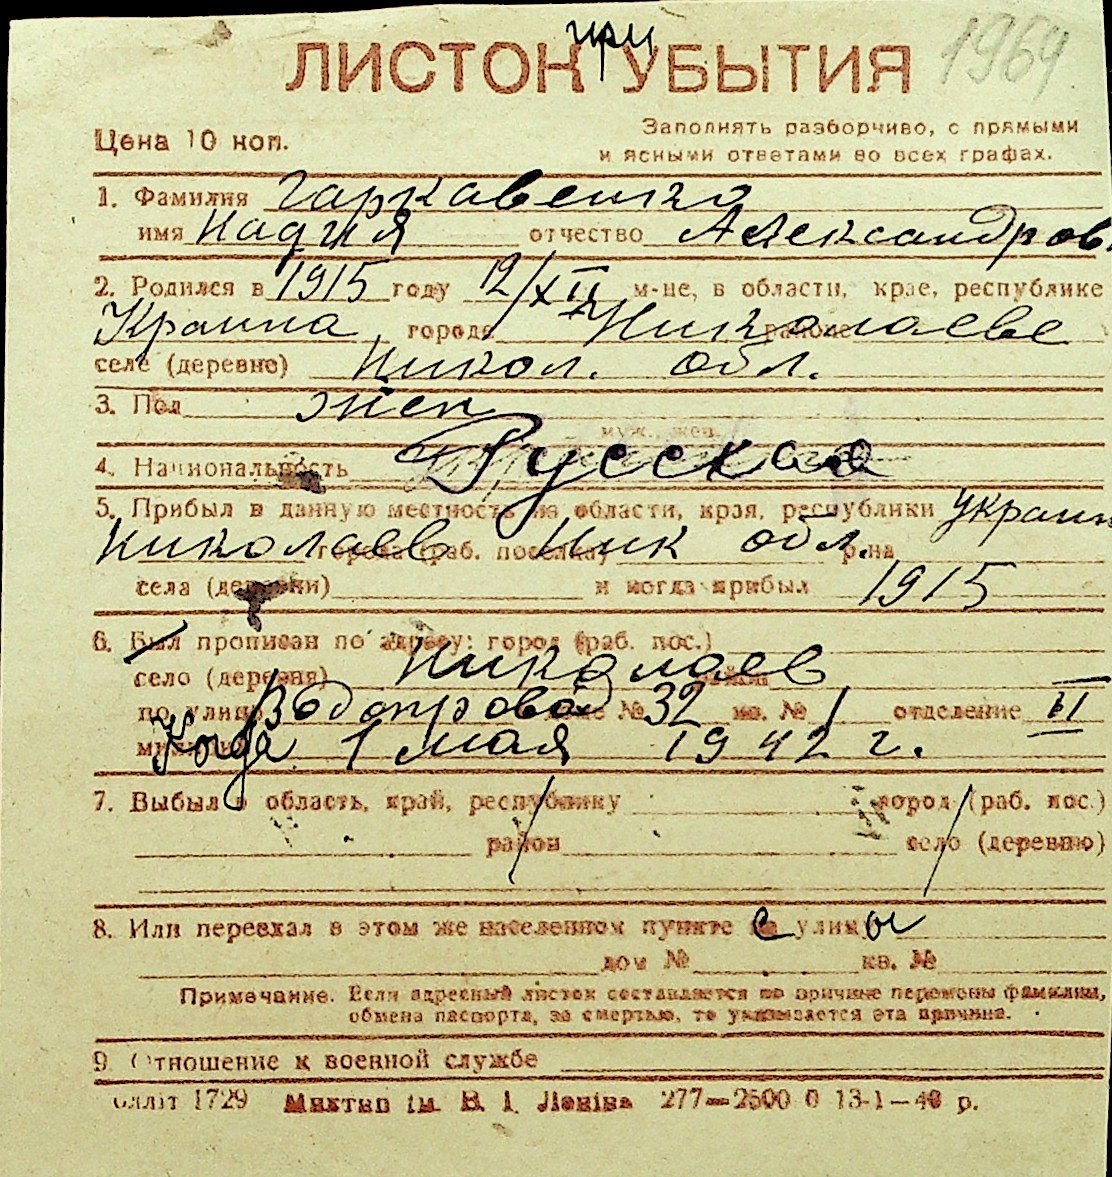 ЛИСТОК при УБЫТИЯ 1969
Цена 10 коп.
Заполнять разборчиво, с прямыми
и ясными ответами во всех графах.
1. Фамилия Гаркавенко
имя Надия отчество Александров.
2. Родился в 1915 году 12/XII м-це, в области, крае, республике
Краина городе Николаеве районе
селе (деревне) Никол. обл.
3. Пол жен
муж., жен.
4. Национальность Русская
5. Прибыл в данную местность из области, края, республики Украин
Николаев города (раб. поселка) Ник обл. р-на
села (деревни) и когда прибыл 1915
6. Был прописан по адресу: город (раб. пос.)
село (деревня) Николаев
по улице Водопровод № 32 кв. № 1 отделение II
Когда 1 мая 1942 г.
7. Выбыл в область, край, республику город (раб. пос.)
район село (деревню)
8. Или переехал в этом же населенном пункте с улицы
дом № кв. №
Примечание. Если адресный листок составляется по причине перемены фамилии,
обмена паспорта, за смертью, то указывается эта причина.
9. Отношение к военной службе
1729 Миктип ім. В. І. Леніна 277—2500 0 13-1—40 р.